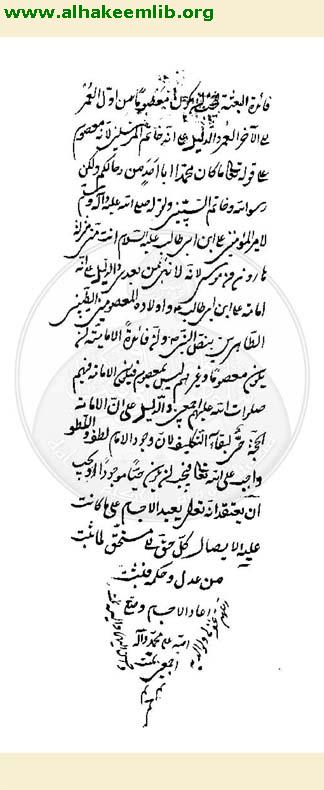 www.alhakeemlib.org
فائدة البعثة يجب ان يكون معصوما من اول العمر
الى الآخر العمر والدليل على انه خاتم المرسلين لانه معصوم
على قوله تعالى ما كان محمد ابا احد من رجالكم ولكن
رسول الله وخاتم النبيين ولقوله صلى الله عليه وآله وسلم
لامير المؤمنين على ابن ابى طالب عليه السلام انت منى بمنزلة
هارون من موسى لانه لا نبى من بعدى والدليل على انه
امامة على ابن ابى طالب واولاده المعصومين الطيبين
الطاهرين ينقل النبى ولان فائدة الامامة ان
يكون معصوما وغيرهم ليس بمعصوم فيكون الامامة فيهم
صلوات الله عليهم اجمعين والدليل على ان الامامة
الحجة حى لبقاء التكليف لان وجود الامام لطف واللطف
واجب على الله تعالى فيجب ان يكون حيا موجودا ويجب
ان يعتقد انه تعالى يعيد الاجسام على ما كانت
عليه لايصال كل حق الى مستحق لما ثبت
من عدل وحكمه فثبت
اعاد الاجسام
الله على محمد وآله
اجمعين تمت
تم
تم